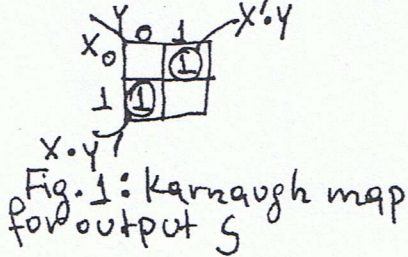 Y
X 0 1 X'·Y
0 1
1 1
X·Y'
Fig. 1: Karnaugh map
for output S